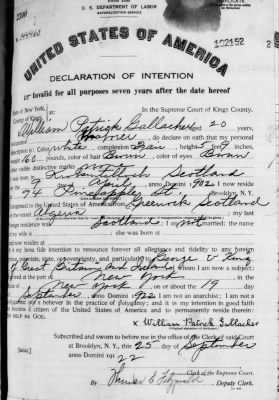 2200
U. S. DEPARTMENT OF LABOR
NATURALIZATION SERVICE
UNITED STATES OF AMERICA
102152
DECLARATION OF INTENTION
Invalid for all purposes seven years after the date hereof
State of New York,
In the Supreme Court of Kings County.
County of Kings
William Patrick Gallacher aged 20 years,
occupation do declare on oath that my personal
description is: Color White complexion Fair height 5 feet 9 inches,
weight 160 pounds, color of hair Brown color of eyes Brown
other visible distinctive marks
born in Scotland
on the 7 day of April anno Domini 1902 I now reside
at 74 Pineapple St. Brooklyn, N.Y.
emigrated to the United States of America from Greenock Scotland
vessel Algeria ; my last
foreign residence was Scotland I am not married; the name
she was born at
and now resides at
It is my bona fide intention to renounce forever all allegiance and fidelity to any foreign
prince, potentate, state, or sovereignty, and particularly to George V King
of Great Britain and Ireland of whom I am now a subject;
arrived at the port of New York in the
State of New York on or about the 19 day
September anno Domini 1922 I am not an anarchist: I am not a
polygamist nor a believer in the practice of polygamy; and it is my intention in good faith
to become a citizen of the United States of America and to permanently reside therein:
SO HELP ME GOD.
x William Patrick Gallacher
Subscribed and sworn to before me in the office of the Clerk of said Court
[SEAL] at Brooklyn, N. Y., this 25 day of September
anno Domini 1922
Clerk of the Supreme Court.
By Deputy Clerk.